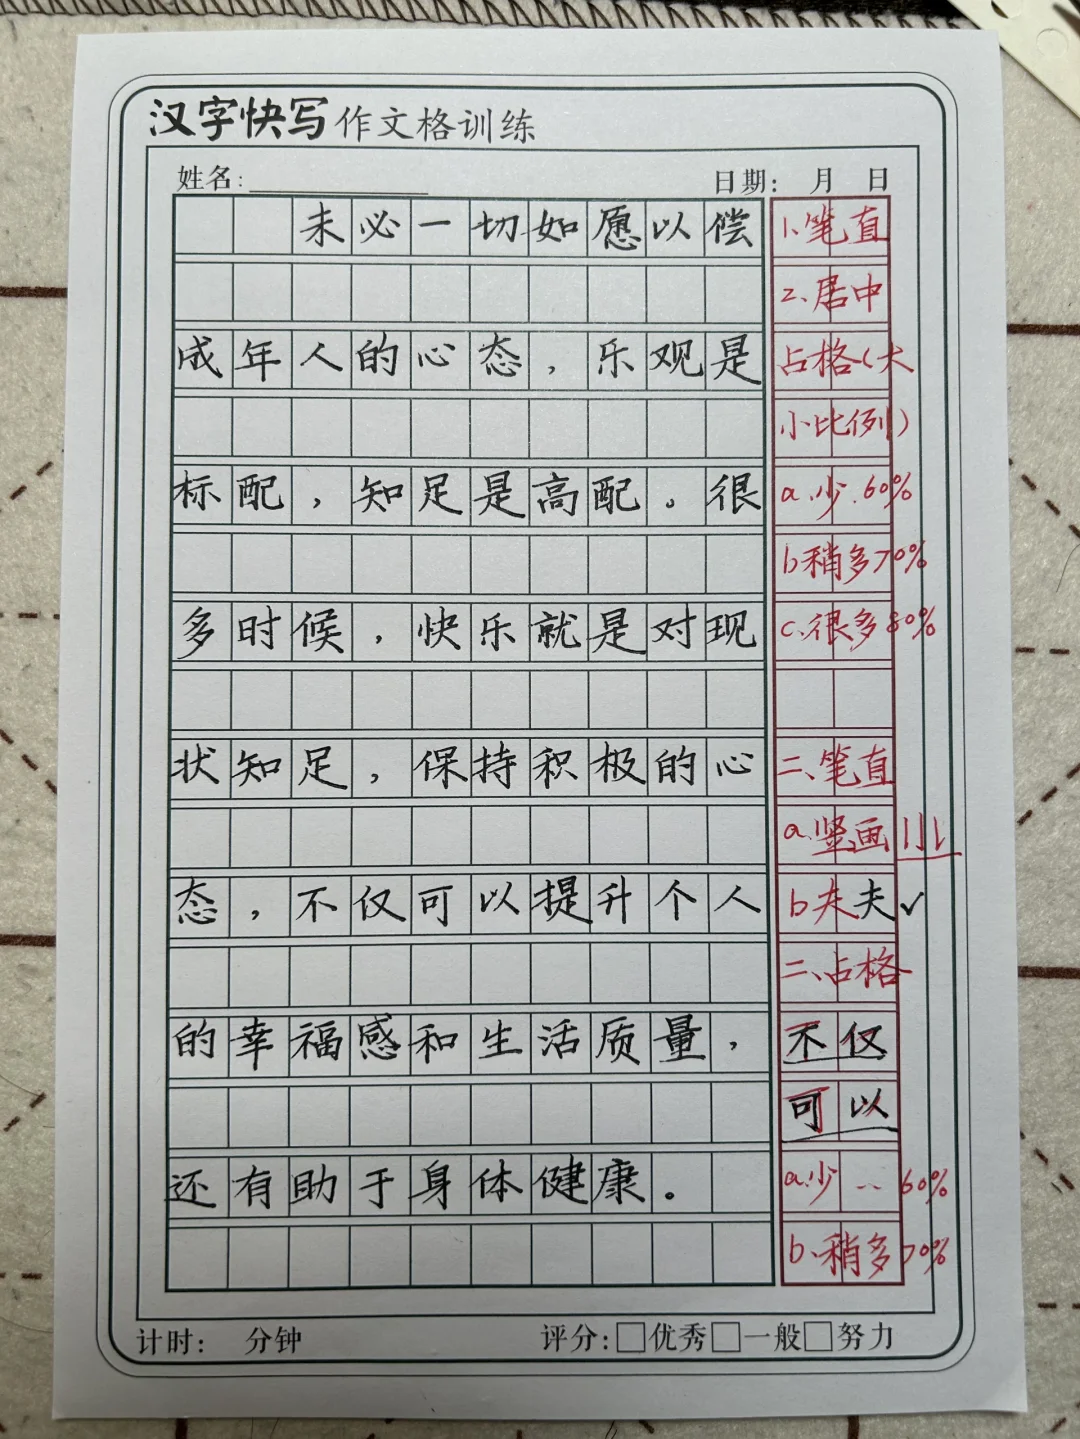 汉字快写作文格训练
姓名: 日期: 月 日
未必一切如愿以偿
成年人的心态,乐观是
标配,知足是高配。很
多时候,快乐就是对现
状知足,保持积极的心
态,不仅可以提升个人
的幸福感和生活质量,
还有助于身体健康。
1.笔直
2、居中
占格(大
小比例)
a.少.60%
b稍多70%
c.很多80%
二、笔直
a.竖画
b夫夫✓
二、占格
不仅
可以
a.少 ·· 60%
b.稍多70%
计时: 分钟 评分:□优秀□一般□努力